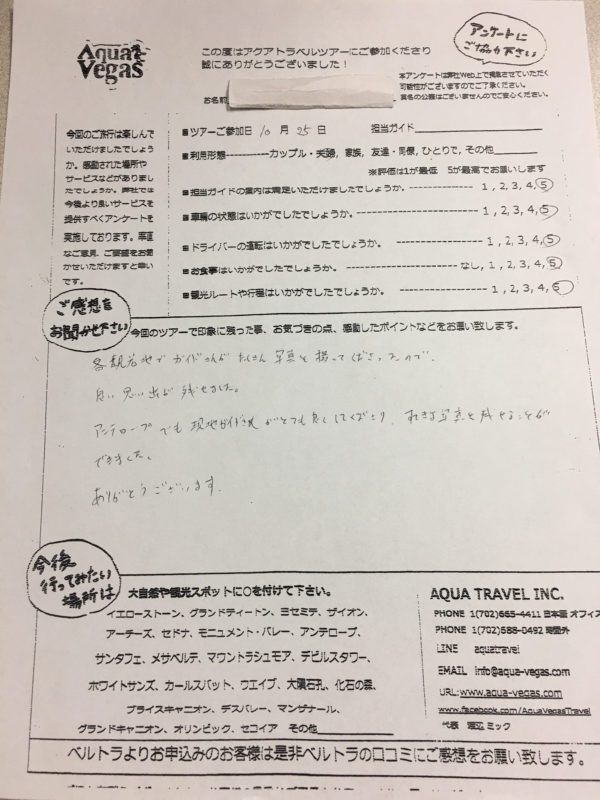 Aqua Vegas
この度はアクアトラベルツアーにご参加くださり
誠にありがとうございました！
アンケートに
ご協力下さい
本アンケートは弊社Web上で掲載させていただく
可能性がございますのでご了承ください。
実名の公開はございませんのでご安心ください。
お名前
今回のご旅行は楽しんで
いただけましたでしょう
か。感動された場所や
サービスなどがありまし
たでしょうか。弊社では
今後より良いサービスを
提供すべくアンケートを
実施しております。率直
なご意見、ご要望をお聞
かせいただけますと幸い
です。
■ツアーご参加日 10 月 25 日 担当ガイド
■利用形態-----------カップル・夫婦, 家族, 友達・同僚, ひとりで, その他
※評価は1が最低 5が最高でお願いします
■担当ガイドの案内は満足いただけましたでしょうか。 ---------------- 1, 2, 3, 4, 5
■車輌の状態はいかがでしたでしょうか。------------------------- 1, 2, 3, 4, 5
■ドライバーの運転はいかがでしたでしょうか。 ------------------ 1, 2, 3, 4, 5
■お食事はいかがでしたでしょうか。 ------------------- なし, 1, 2, 3, 4, 5
■観光ルートや行程はいかがでしたでしょうか。 ------------------ 1, 2, 3, 4, 5
ご感想を
お聞かせ下さい
今回のツアーで印象に残った事、お気づきの点、感動したポイントなどをお願い致します。
各観光地でガイドさんがたくさん写真を撮ってくださったので、
良い思い出が残せました。
アンテロープでも現地ガイドさんがとても良くしてくださり、すてきな写真を残せることが
できました。
ありがとうございます。
今後
行ってみたい
場所は
大自然や観光スポットに○を付けて下さい。
イエローストーン、グランドティートン、ヨセミテ、ザイオン、
アーチーズ、セドナ、モニュメント・バレー、アンテロープ、
サンタフェ、メサベルテ、マウントラシュモア、デビルスタワー、
ホワイトサンズ、カールスバット、ウエイブ、大隕石孔、化石の森、
ブライスキャニオン、デスバレー、マンザナール、
グランドキャニオン、オリンピック、セコイア その他
AQUA TRAVEL INC.
PHONE 1(702)665-4411 日本語 オフィス
PHONE 1(702)688-0492 時間外
LINE aquatravel
EMAIL info@aqua-vegas.com
URL:www.aqua-vegas.com
www.facebook.com/AquaVegasTravel
代表 渡辺 ミック
ベルトラよりお申込みのお客様は是非ベルトラの口コミにご感想をお願い致します。